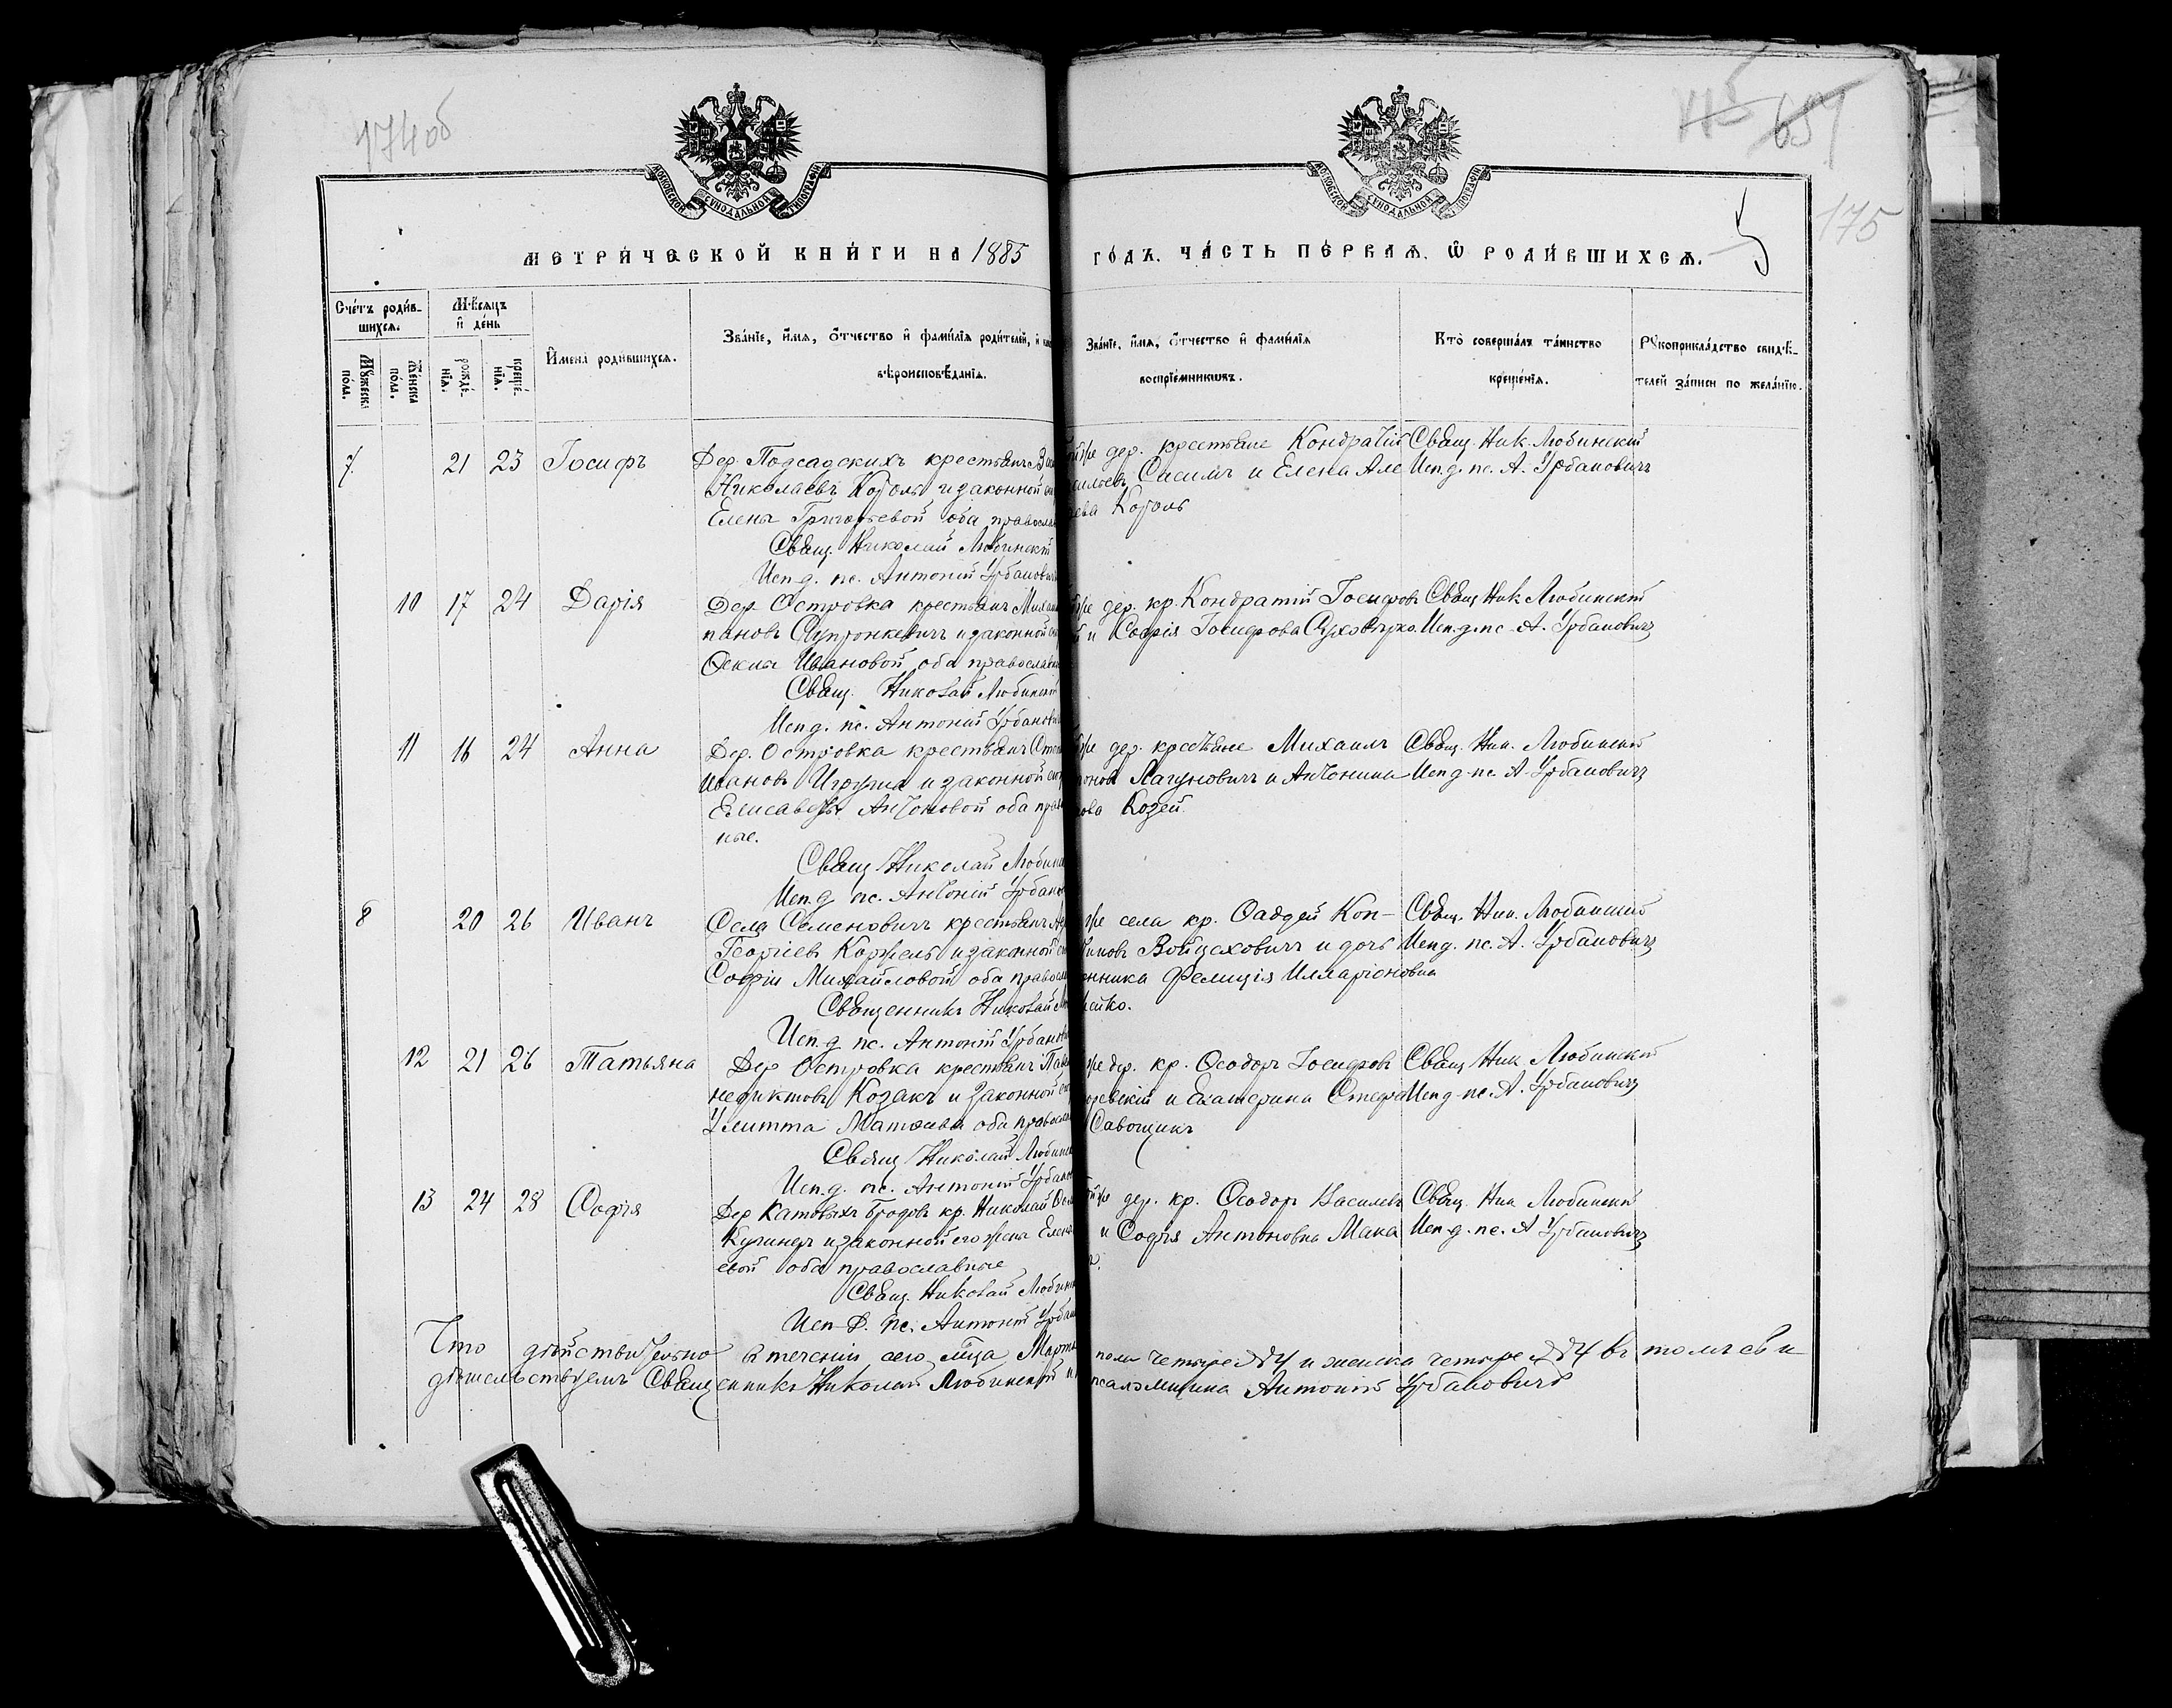 174об
115 651
175
5
МОСКОВСКОЙ СУНОДАЛЬНОЙ ТИПОГРАФІИ
МОСКОВСКОЙ СУНОДАЛЬНОЙ ТИПОГРАФІИ
МЕТРИ́ЧЕСКОЙ КНИ́ГИ НА 1885
ГО́ДЪ. ЧА́СТЬ ПЕ́РВАѦ, Ѿ РОДИ́ВШИХСѦ.
Сче́тъ роди́в-
шихсѧ.
Му́жеска
по́ла.
Же́нска
по́ла.
Мѣ́сѧцъ
и҆ де́нь
рожде́-
нїѧ.
креще́-
нїѧ.
И҆мена̀ роди́вшихсѧ.
Зва́нїе, и҆́мѧ, ѻ҆́тчество и҆ фами́лїѧ роди́телей, и҆
вѣроисповѣ́данїѧ.
Зва́нїе, и҆́мѧ, ѻ҆́тчество и҆ фами́лїѧ
воспрїе́мникѡвъ.
Кто̀ соверша́лъ та́инство
креще́нїѧ.
Рꙋкоприкла́дство свидѣ́-
телей за́писи по жела́нїю.
7. 21 23 Іосифъ
Дер. Подсадскихъ крестьянъ
Николаевъ Король и законной
Елена Григорьевой оба правосла
Свящ. Николай Любинскій
Исп.д. пс. Антоній Урбановичъ
дер. крестьяне Кондратій
Сасимъ и Елена Але
ева Король
Свящ. Ник. Любинскій
Исп.д. пс. А. Урбановичъ
10 17 24 Дарія
Дер. Островка крестьянъ Михаи
пановъ Супронкевичъ и законной
Ѳекла Ивановой оба православ
Свящ. Николай Любинскій
Исп.д. пс. Антоній Урбанови
дер. кр. Кондратій Іосифовъ
и Софія Іосифова
Свящ Ник Любинскій
Исп.д. пс. А. Урбановичъ
11 16 24 Анна
Дер. Островка крестьянъ
Ивановъ и законной
Елисаветы Антоновой оба прав
ные.
Свящ Николай Любинс
Исп.д пс. Антоній Урбано
дер. крестьяне Михаилъ
оновъ Лагуновичъ и Антонина
ова Козей
Свящ. Ник. Любинскій
Исп.д. пс. А Урбановичъ
8 20 26 Иванъ
Села Семеновичъ крестьянъ
Георгіевъ Коржель и законной
Софіи Михайловой оба правосл
Священникъ Николай
Исп.д пс. Антоній Урбанов
же села кр. Ѳаддей Кон-
Войцеховичъ и дочь
енника Фелиція Илларіоновна
ейко.
Свящ. Ник. Любинскій
Исп.д. пс. А. Урбановичъ
12 21 26 Татьяна
Дер Островка крестьянъ
недиктовъ Козакъ и законной
Улитта Матѳеева оба правосл
Свящ Николай Любинс
Исп.д. пс. Антоній Урбано
же дер. кр. Ѳеодоръ Іосифовъ
и Екатерина Стефа
Савощикъ
Свящ Ник Любинскій
Исп.д. пс. А. Урбановичъ
13 24 28 Софія
Дер Катовыхъ Бродовъ кр. Николай
Кучинеръ и законной его жены Елен
евой оба православные
Свящ. Николай Любинс
Исп.д. пс. Антоній Урбан
дер. кр. Ѳеодоръ Василевъ
и Софія Антоновна Мака
Свящ. Ник Любинскій
Исп.д. пс. А Урбановичъ
Что дѣйствительно въ теченіи сего мца Марта
пола четыре 4 и женска четыре 4 въ томъ сви
дѣтельствуемъ Священникъ Николай Любинскій и
псаломщика Антоній Урбановичъ